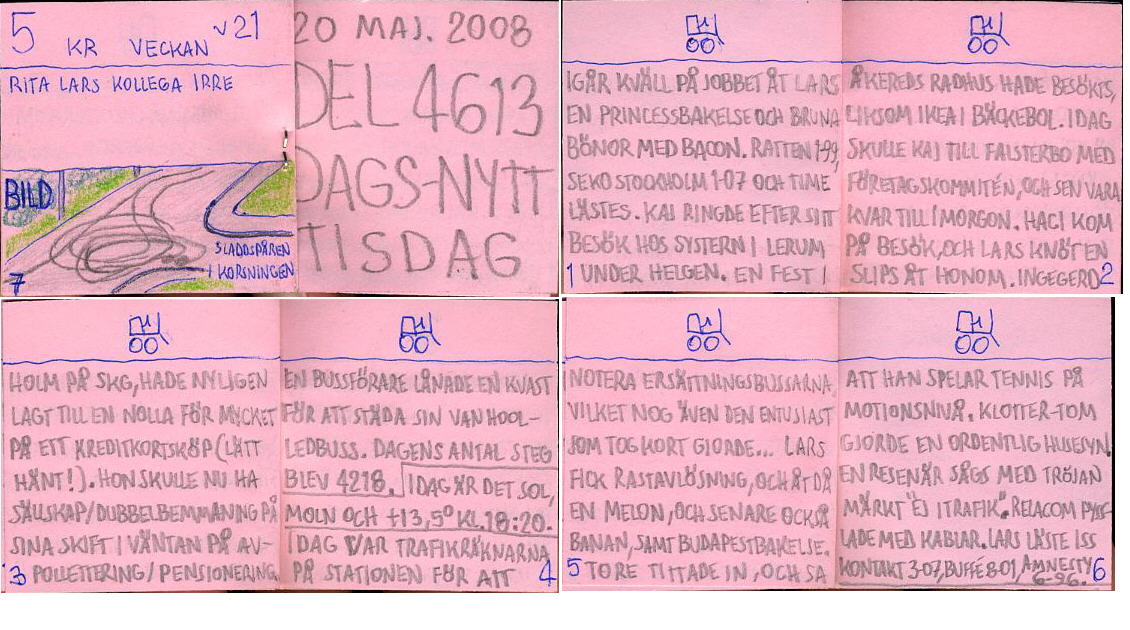 5 KR VECKAN v21
RITA LARS KOLLEGA IRRE
BILD
SLADDSPÅREN
I KORSNINGEN
7
20 MAJ. 2008
DEL 4613
DAGS-NYTT
TISDAG
IGÅR KVÄLL PÅ JOBBET ÅT LARS
EN PRINCESSBAKELSE OCH BRUNA
BÖNOR MED BACON. RATTEN 1-99,
SEKO STOCKHOLM 1-07 OCH TIME
LÄSTES. KAJ RINGDE EFTER SITT
BESÖK HOS SYSTERN I LERUM
1 UNDER HELGEN. EN FEST I
ÅKEREDS RADHUS HADE BESÖKTS,
LIKSOM IKEA I BÄCKEBOL. IDAG
SKULLE KAJ TILL FALSTERBO MED
FÖRETAGSKOMMITÉN, OCH SEN VARA
KVAR TILL IMORGON. HACI KOM
PÅ BESÖK, OCH LARS KNÖT EN
SLIPS ÅT HONOM. INGEGERD 2
HOLM PÅ SKG, HADE NYLIGEN
LAGT TILL EN NOLLA FÖR MYCKET
PÅ ETT KREDITKORTSKÖP (LÄTT
HÄNT!). HON SKULLE NU HA
SÄLLSKAP/DUBBELBEMMANING PÅ
SINA SKIFT I VÄNTAN PÅ AV-
3 POLLETTERING/PENSIONERING.
EN BUSSFÖRARE LÅNADE EN KVAST
FÖR ATT STÄDA SIN VAN HOOL-
LEDBUSS. DAGENS ANTAL STEG
BLEV 4218. IDAG ÄR DET SOL,
MOLN OCH +13,5° KL.18:20.
IDAG VAR TRAFIKRÄKNARNA
PÅ STATIONEN FÖR ATT 4
NOTERA ERSÄTTNINGSBUSSARNA,
VILKET NOG ÄVEN DEN ENTUSIAST
SOM TOG KORT GJORDE... LARS
FICK RASTAVLÖSNING, OCH ÅT DÅ
EN MELON, OCH SENARE OCKSÅ
BANAN, SAMT BUDAPESTBAKELSE.
5 TORE TITTADE IN, OCH SA
ATT HAN SPELAR TENNIS PÅ
MOTIONSNIVÅ. KLOTTER-TOM
GJORDE EN ORDENTLIG HUSESYN.
EN RESENÄR SÅGS MED TRÖJAN
MÄRKT "EJ I TRAFIK". RELACOM PYSS-
LADE MED KABLAR. LARS LÄSTE ISS
KONTAKT 3-07, BUFFÉ 8-01, AMNESTY
6-96. 6